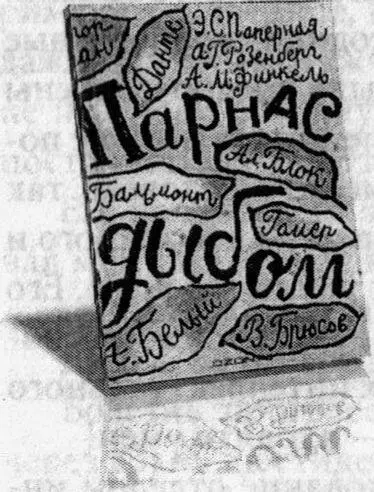 Данте
Э.С. Паперная
А.Г. Розенберг
А.М. Финкель
Парнас
Ал. Блок
Бальмонт
Гомер
дыбом
А. Белый
В. Брюсов
OZON